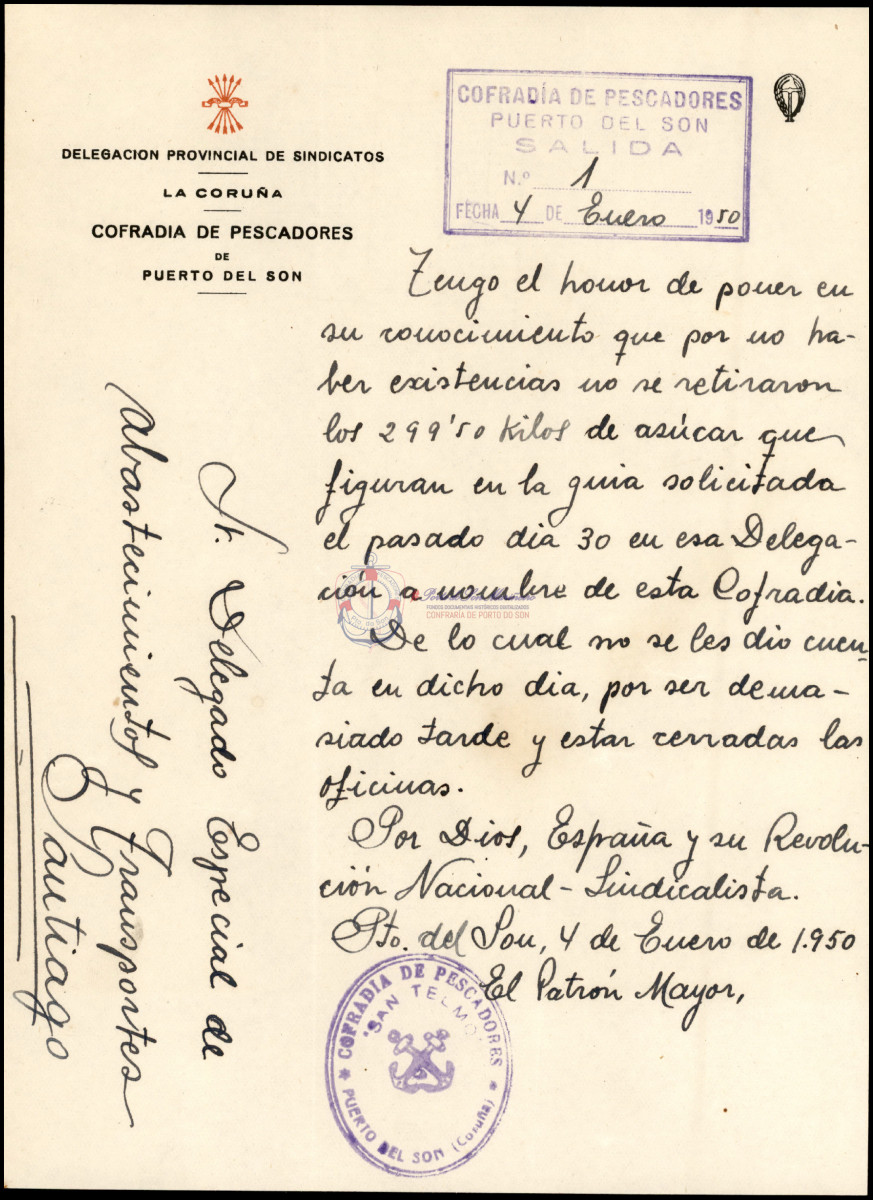 DELEGACION PROVINCIAL DE SINDICATOS
LA CORUÑA
COFRADIA DE PESCADORES
DE
PUERTO DEL SON
COFRADÍA DE PESCADORES
PUERTO DEL SON
SALIDA
N.º 1
FECHA 4 DE Enero 1950
Tengo el honor de poner en
su conocimiento que por no ha-
ber existencias no se retiraron
los 299'50 Kilos de azúcar que
figuran en la guia solicitada
el pasado dia 30 en esa Delega-
ción a nombre de esta Cofradia.
De lo cual no se les dio cuen-
ta en dicho dia, por ser dema-
siado tarde y estar cerradas las
oficinas.
Por Dios, España y su Revolu-
ción Nacional-Sindicalista.
Pto. del Son, 4 de Enero de 1.950
El Patrón Mayor,
COFRADIA DE PESCADORES
"SAN TELMO"
* PUERTO DEL SON (Coruña) *
Sr. Delegado Especial de
Abastecimientos y Transportes
Santiago
FONDOS DOCUMENTAIS HISTÓRICOS DIXITALIZADOS
CONFRARÍA DE PORTO DO SON